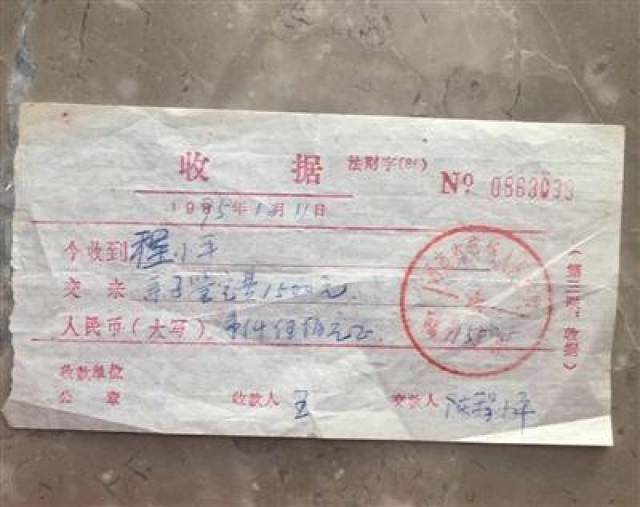 收 据 法财字(8)
№ 0863033
1995年1月11日
今收到程小平
交来亲子鉴定费1500元.
人民币(大写) 壹仟伍佰元正.
收款单位
公 章 收款人 王 交款人
(第三联:收据)